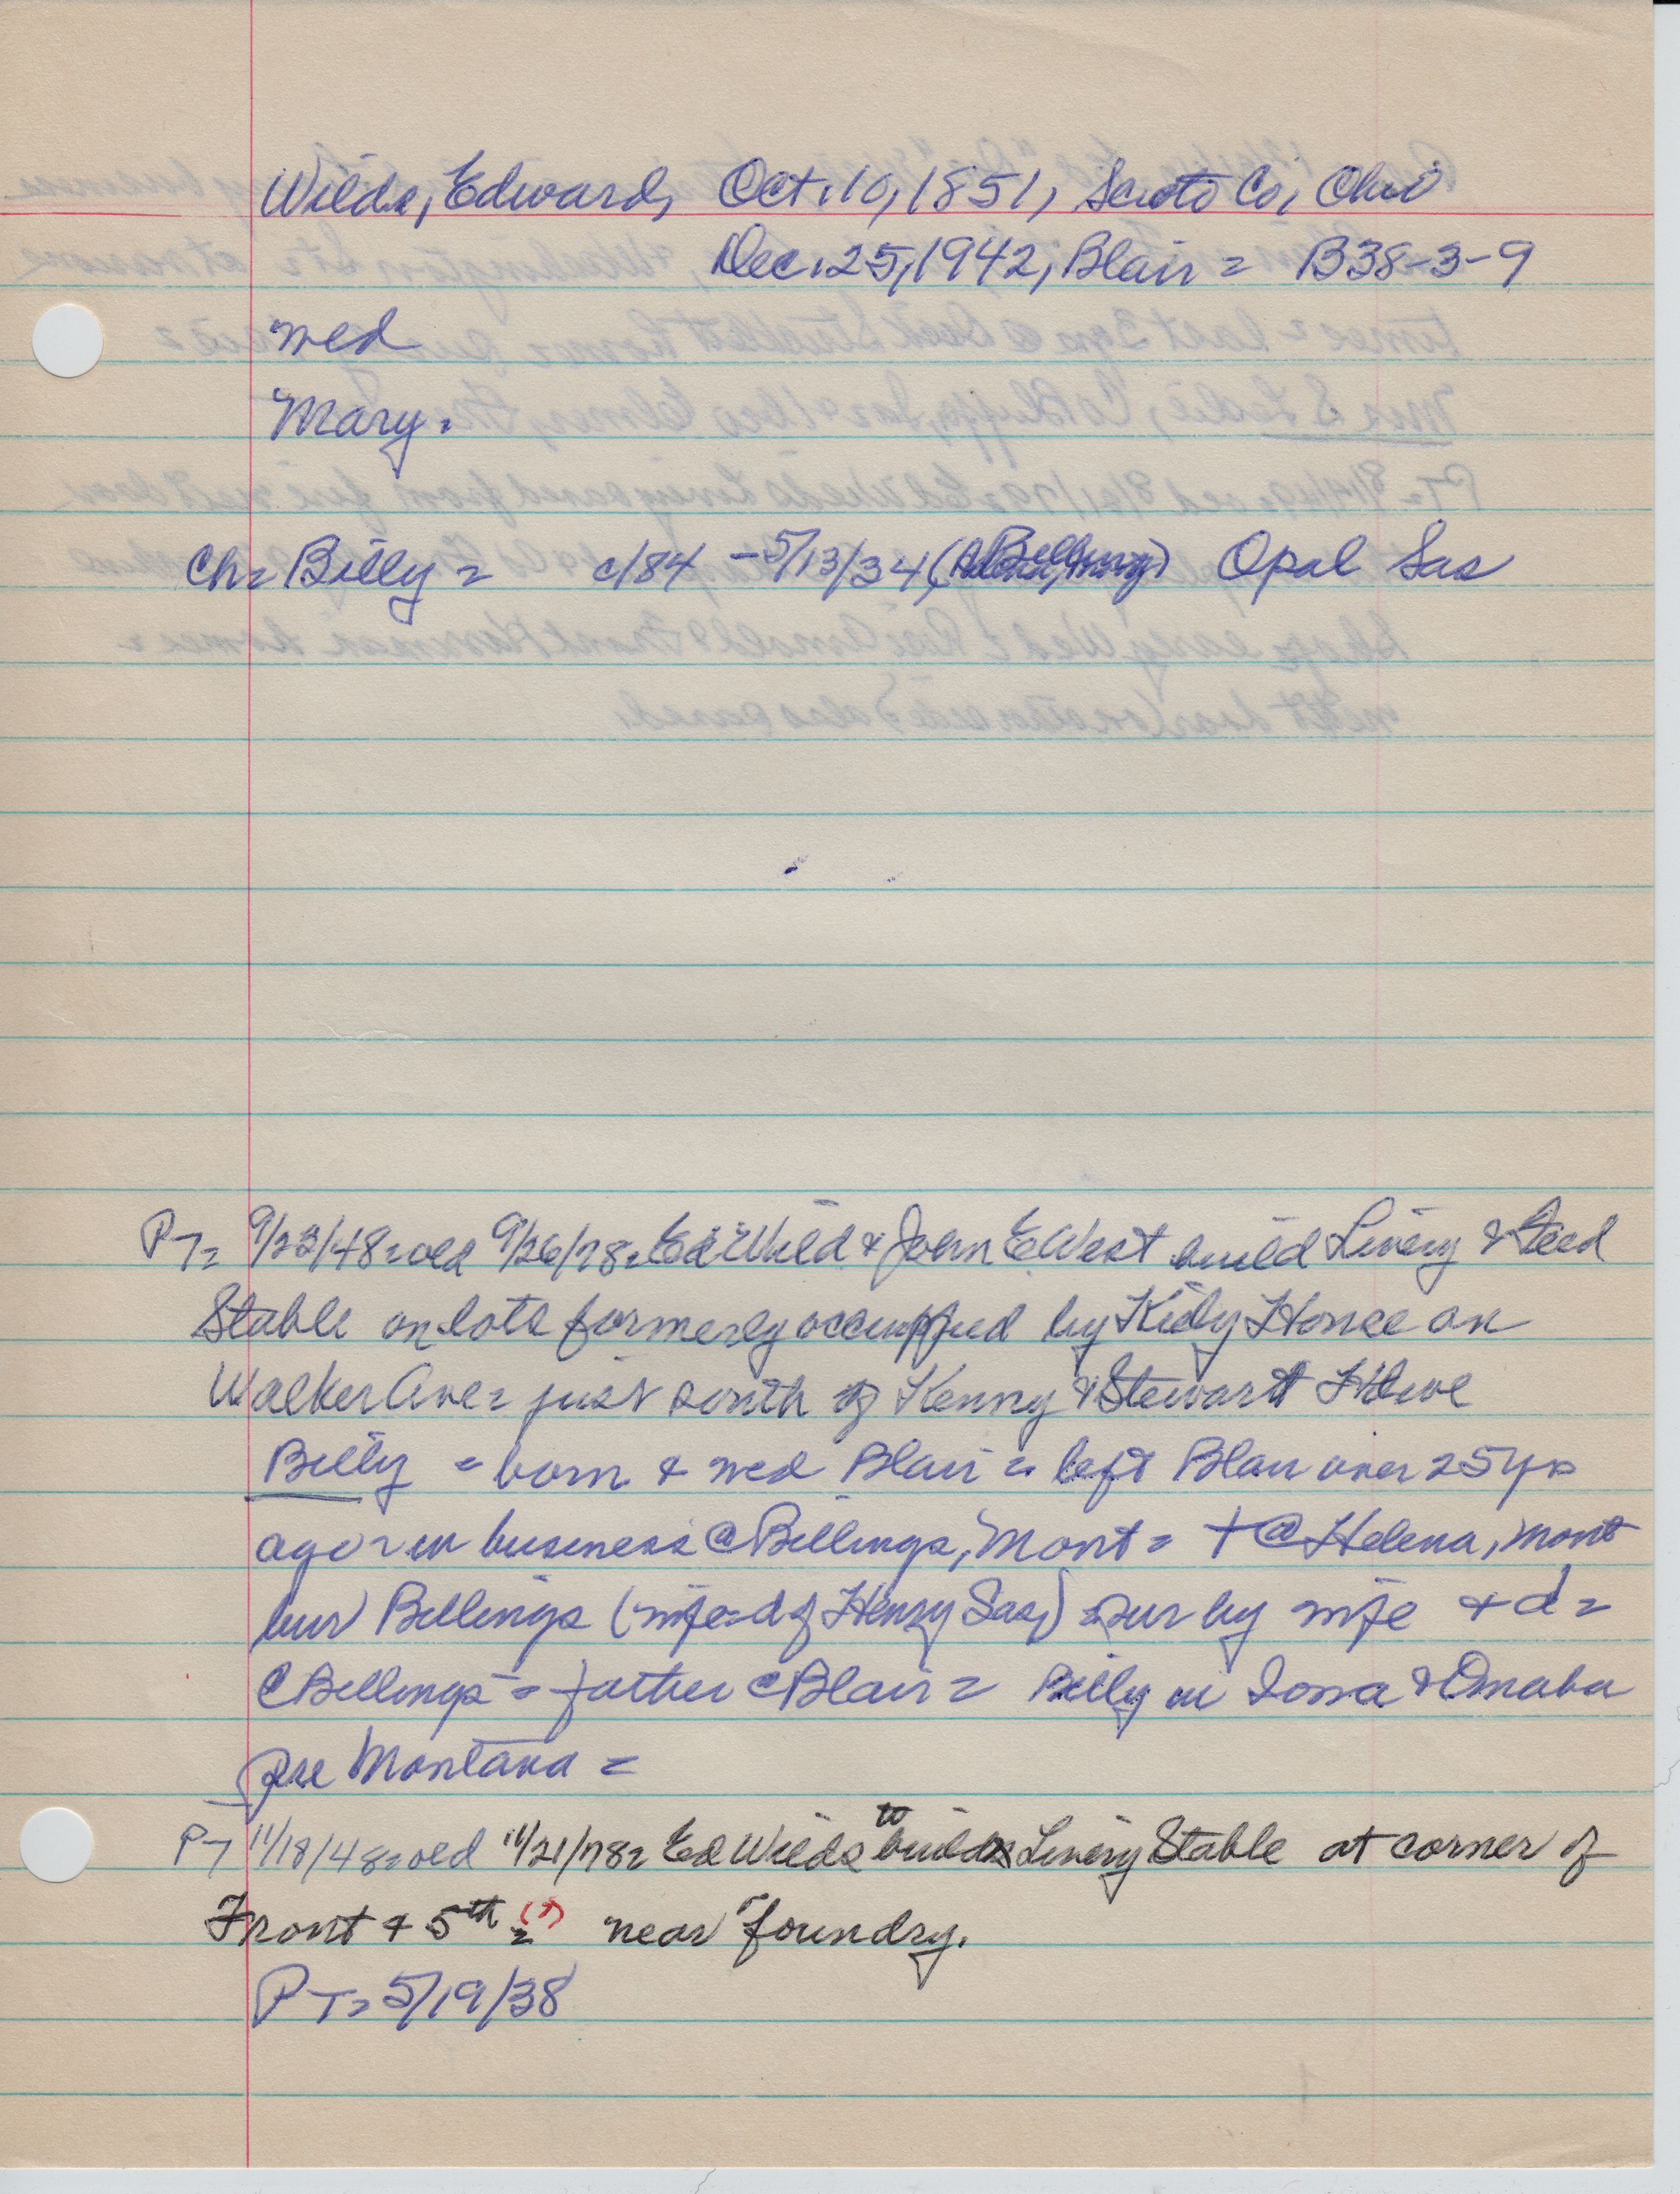 Wilds, Edward, Oct. 10, 1851, Scioto Co, Ohio
Dec. 25, 1942, Blair = B38-3-9
wed
Mary.
Ch= Billy = c/84 - 5/13/34 ( ) Opal Sas
PT= 9/23/48=old 9/26/78= Ed Wild & John E West build Livery & Feed
Stable on lots formerly occupied by House on
Walker Ave= just south of Kenny & Stewart
Billy = born & wed Blair = left Blair over 25 yrs
ago = in business @ Billings, Mont = + @ Helena, Mont
bur Billings (wife=d of Henry Sas) = sur by wife & d=
@ Billings = father @ Blair = Billy in Iowa & Omaha
pre Montana =
PT 11/18/48=old 11/21/78= Ed Wilds to build Livery Stable at corner of
Front & 5th = (?) near foundry.
PT= 5/19/38